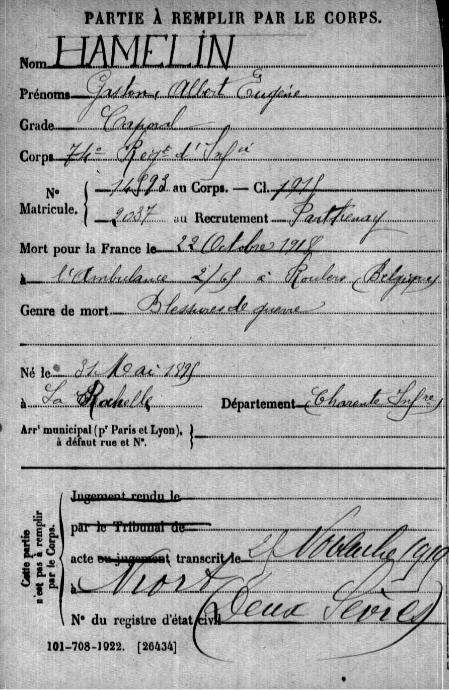 PARTIE À REMPLIR PAR LE CORPS.
Nom HAMELIN
Prénoms Gaston, Albert Eugène
Grade Caporal
Corps 74e Regt d'Infie
N° Matricule. { 14893 au Corps. — Cl. 1915
2037 au Recrutement Parthenay
Mort pour la France le 22 Octobre 1918
à l'Ambulance 2/65 à Roulers (Belgique)
Genre de mort Blessures de guerre
Né le 31 Mai 1895
à La Rochelle Département Charente Infre
Arrt municipal (pr Paris et Lyon), à défaut rue et N°.
Cette partie n'est pas à remplir par le Corps.
Jugement rendu le
par le Tribunal de
acte ou jugement transcrit le Novembre 1919
à Niort
N° du registre d'état civil (Deux Sèvres)
101-708-1922. [26434]